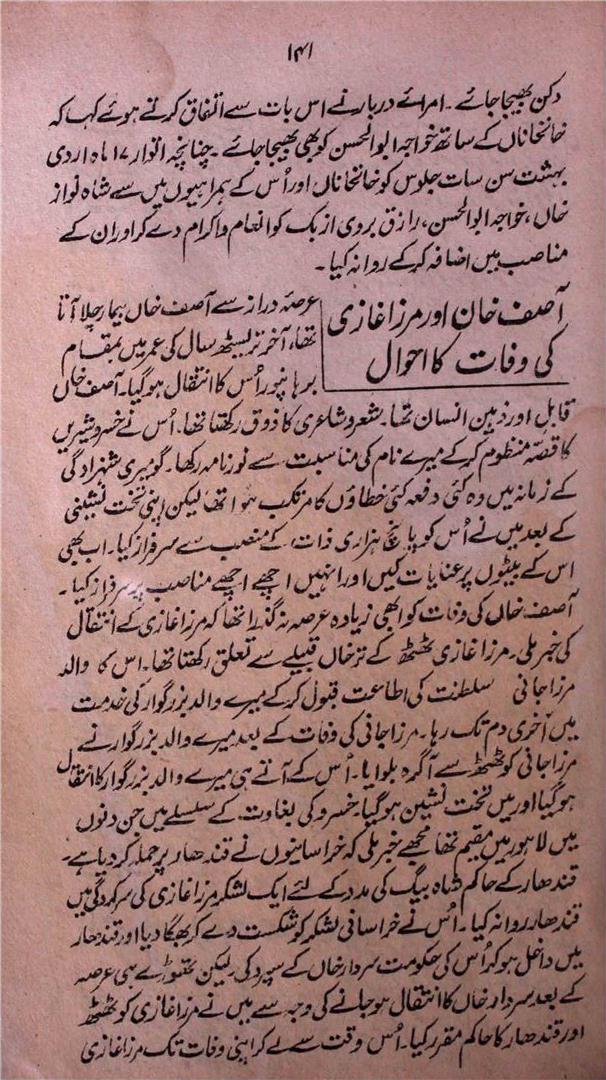 ۱۴۱
دکن بھیجا جائے ۔ امرائے دربار نے اس بات سے اتفاق کرتے ہوئے کہا کہ
خانخاناں کے ساتھ خواجہ ابوالحسن کو بھی بھیجا جائے ۔ چنانچہ اتوار ۱۷ ماہ اردی
بہشت سن سات جلوس کو خانخاناں اور اُس کے ہمراہیوں میں سے شاہ نواز
خاں ، خواجہ ابوالحسن ، رازق بردی ازبک کو انعام و اکرام دے کر اور ان کے
مناصب میں اضافہ کر کے روانہ کیا ۔
آصف خان اور مرزا غازی
کی وفات کا احوال
عرصۂ دراز سے آصف خاں بیمار چلا آتا
تھا، آخر تریسٹھ سال کی عمر میں بمقام
برہانپور اُس کا انتقال ہو گیا۔ آصف خاں
قابل اور ذہین انسان تھا۔ شعر و شاعری کا ذوق رکھتا تھا۔ اُس نے خسرو شیریں
کا قصّہ منظوم کر کے میرے نام کی مناسبت سے نور نامہ رکھا۔ گو میری شہزادگی
کے زمانہ میں وہ کئی دفعہ کئی خطاؤں کا مرتکب ہوا تھا لیکن اپنی تخت نشینی
کے بعد میں نے اُس کو پانچ ہزاری ذات کے منصب سے سرفراز کیا۔ اب بھی
اس کے بیٹوں پر عنایات کیں اور انہیں اچھے اچھے مناصب پر سرفراز کیا ۔
آصف خاں کی وفات کو ابھی زیادہ عرصہ نہ گذرا تھا کہ مرزا غازی کے انتقال
کی خبر ملی۔ مرزا غازی ٹھٹھ کے ترخان قبیلے سے تعلق رکھتا تھا۔ اس کا والد
مرزا جانی سلطنت کی اطاعت قبول کر کے میرے والد بزرگوار کی خدمت
میں آخری دم تک رہا ۔ مرزا جانی کی وفات کے بعد میرے والد بزرگوار نے
مرزا جانی کو ٹھٹھ سے آگرہ بلوایا۔ اُس کے آتے ہی میرے والد بزرگوار کا انتقال
ہو گیا اور میں تخت نشین ہو گیا۔ خسرو کی بغاوت کے سلسلے میں جن دنوں
میں لاہور میں مقیم تھا مجھے خبر ملی کہ خراسانیوں نے قندھار پر حملہ کر دیا ہے۔
قندھار کے حاکم شاہ بیگ کی مدد کے لئے ایک لشکر مرزا غازی کی سرکردگی میں
قندھار روانہ کیا۔ اُس نے خراسانی لشکر کو شکست دے کر بھگا دیا اور قندھار
میں داخل ہو کر اُس کی حکومت سردار خاں کے سپرد کی لیکن تھوڑے ہی عرصہ
کے بعد سردار خاں کا انتقال ہو جانے کی وجہ سے میں نے مرزا غازی کو ٹھٹھ
اور قندھار کا حاکم مقرر کیا۔ اُس وقت سے لے کر اپنی وفات تک مرزا غازی